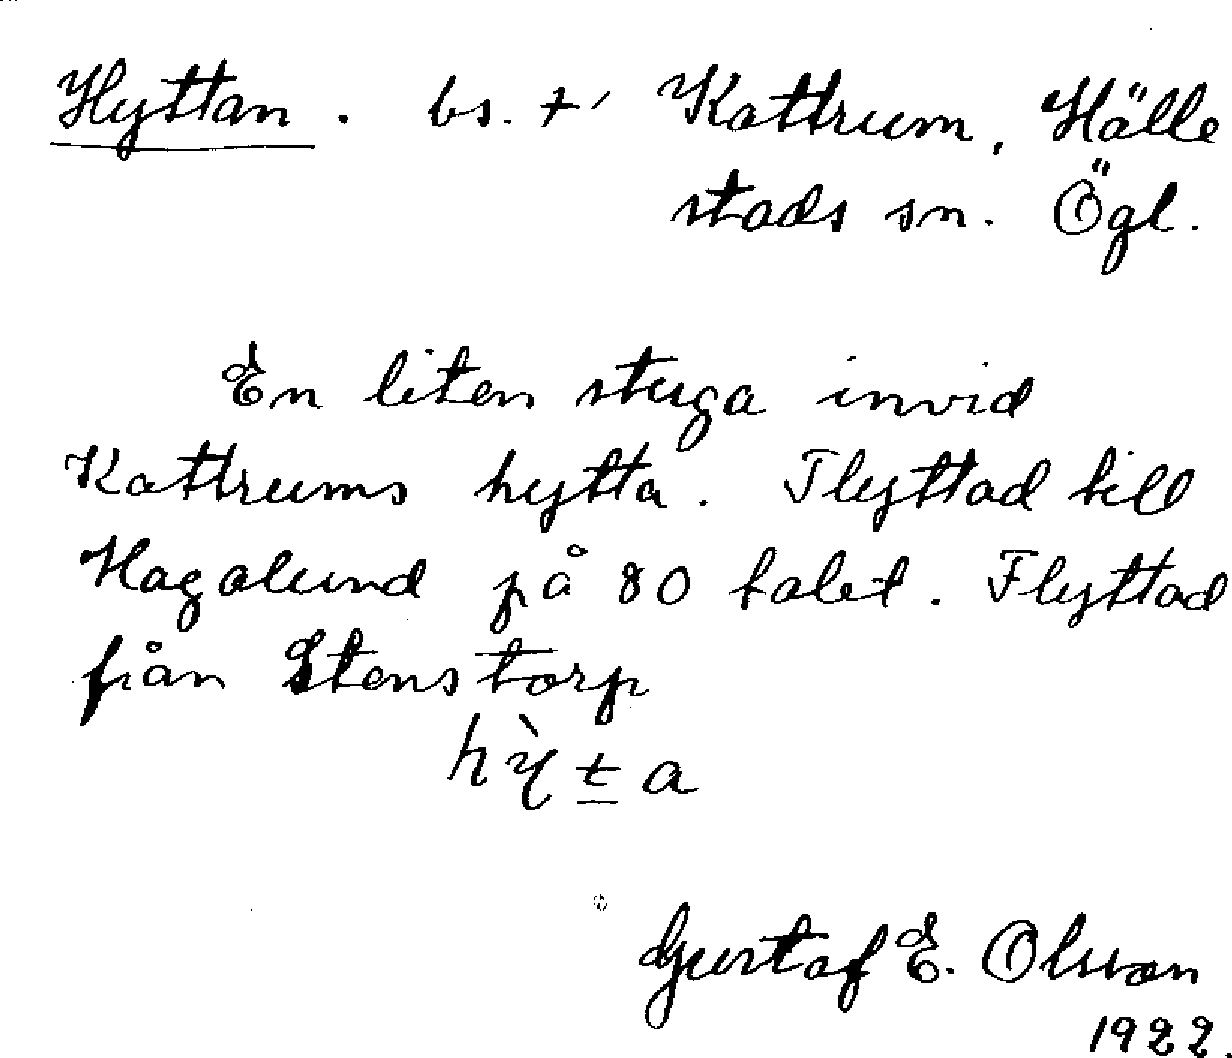 Hyttan. bs. +´ Kattrum, Hälle
stads sn. Ögl.
En liten stuga invid
Kattrums hytta. Flyttad till
Hagalund på 80 talet. Flyttad
från Stenstorp
hỳt̲a
Gustaf E. Olsson
1922.